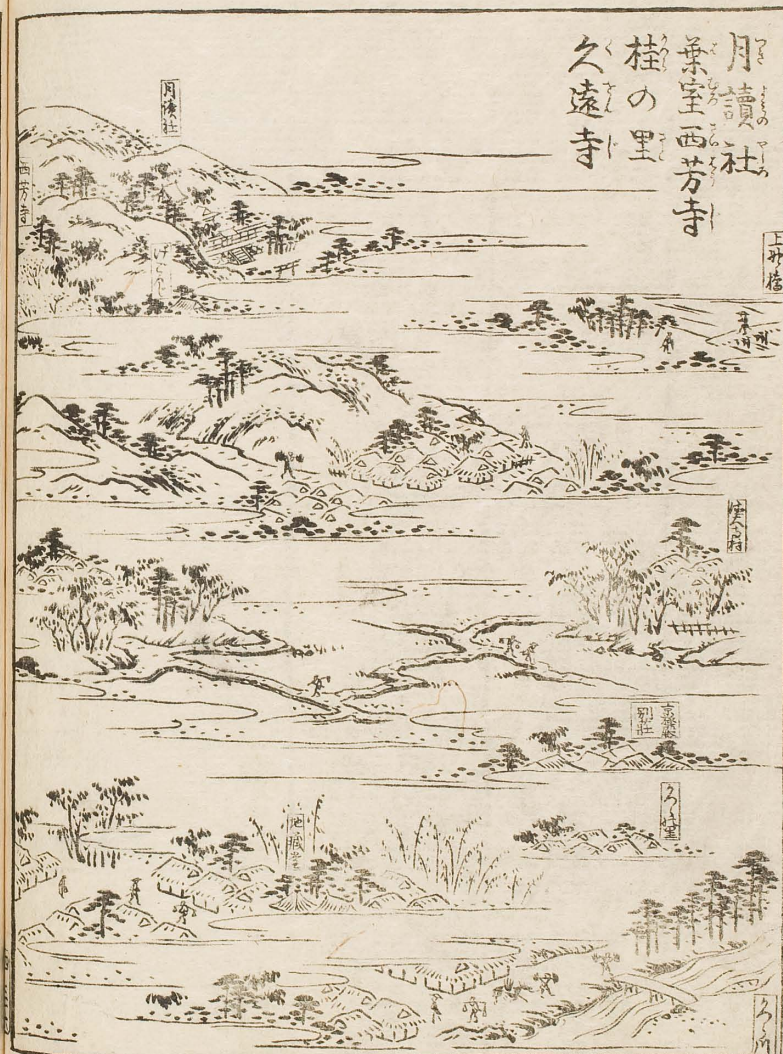 月讀社
葉室西芳寺
桂の里
久遠寺
月讀社
西芳寺
上野橋
徳大寺村
京極殿
別荘
かつら里
地蔵堂
かつら川